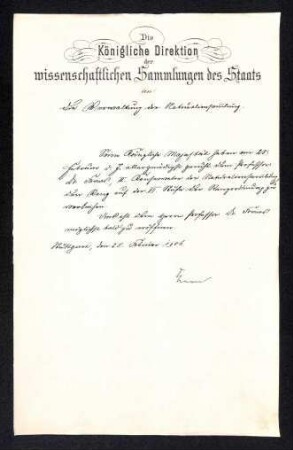 Die
Königliche Direktion
der
wissenschaftlichen Sammlungen des Staats
an
die Verwaltung der Naturaliensammlung.
Seine Königliche Majestät haben am 25.
Februar d. J. allergnädigst geruht, dem Professor
II. Konservator der Naturaliensammlung
den Rang auf der VI. Stufe der Rangordnung zu
verleihen
dem Herrn Professor
zu eröffnen
Stuttgart, den 28. Februar 1906.